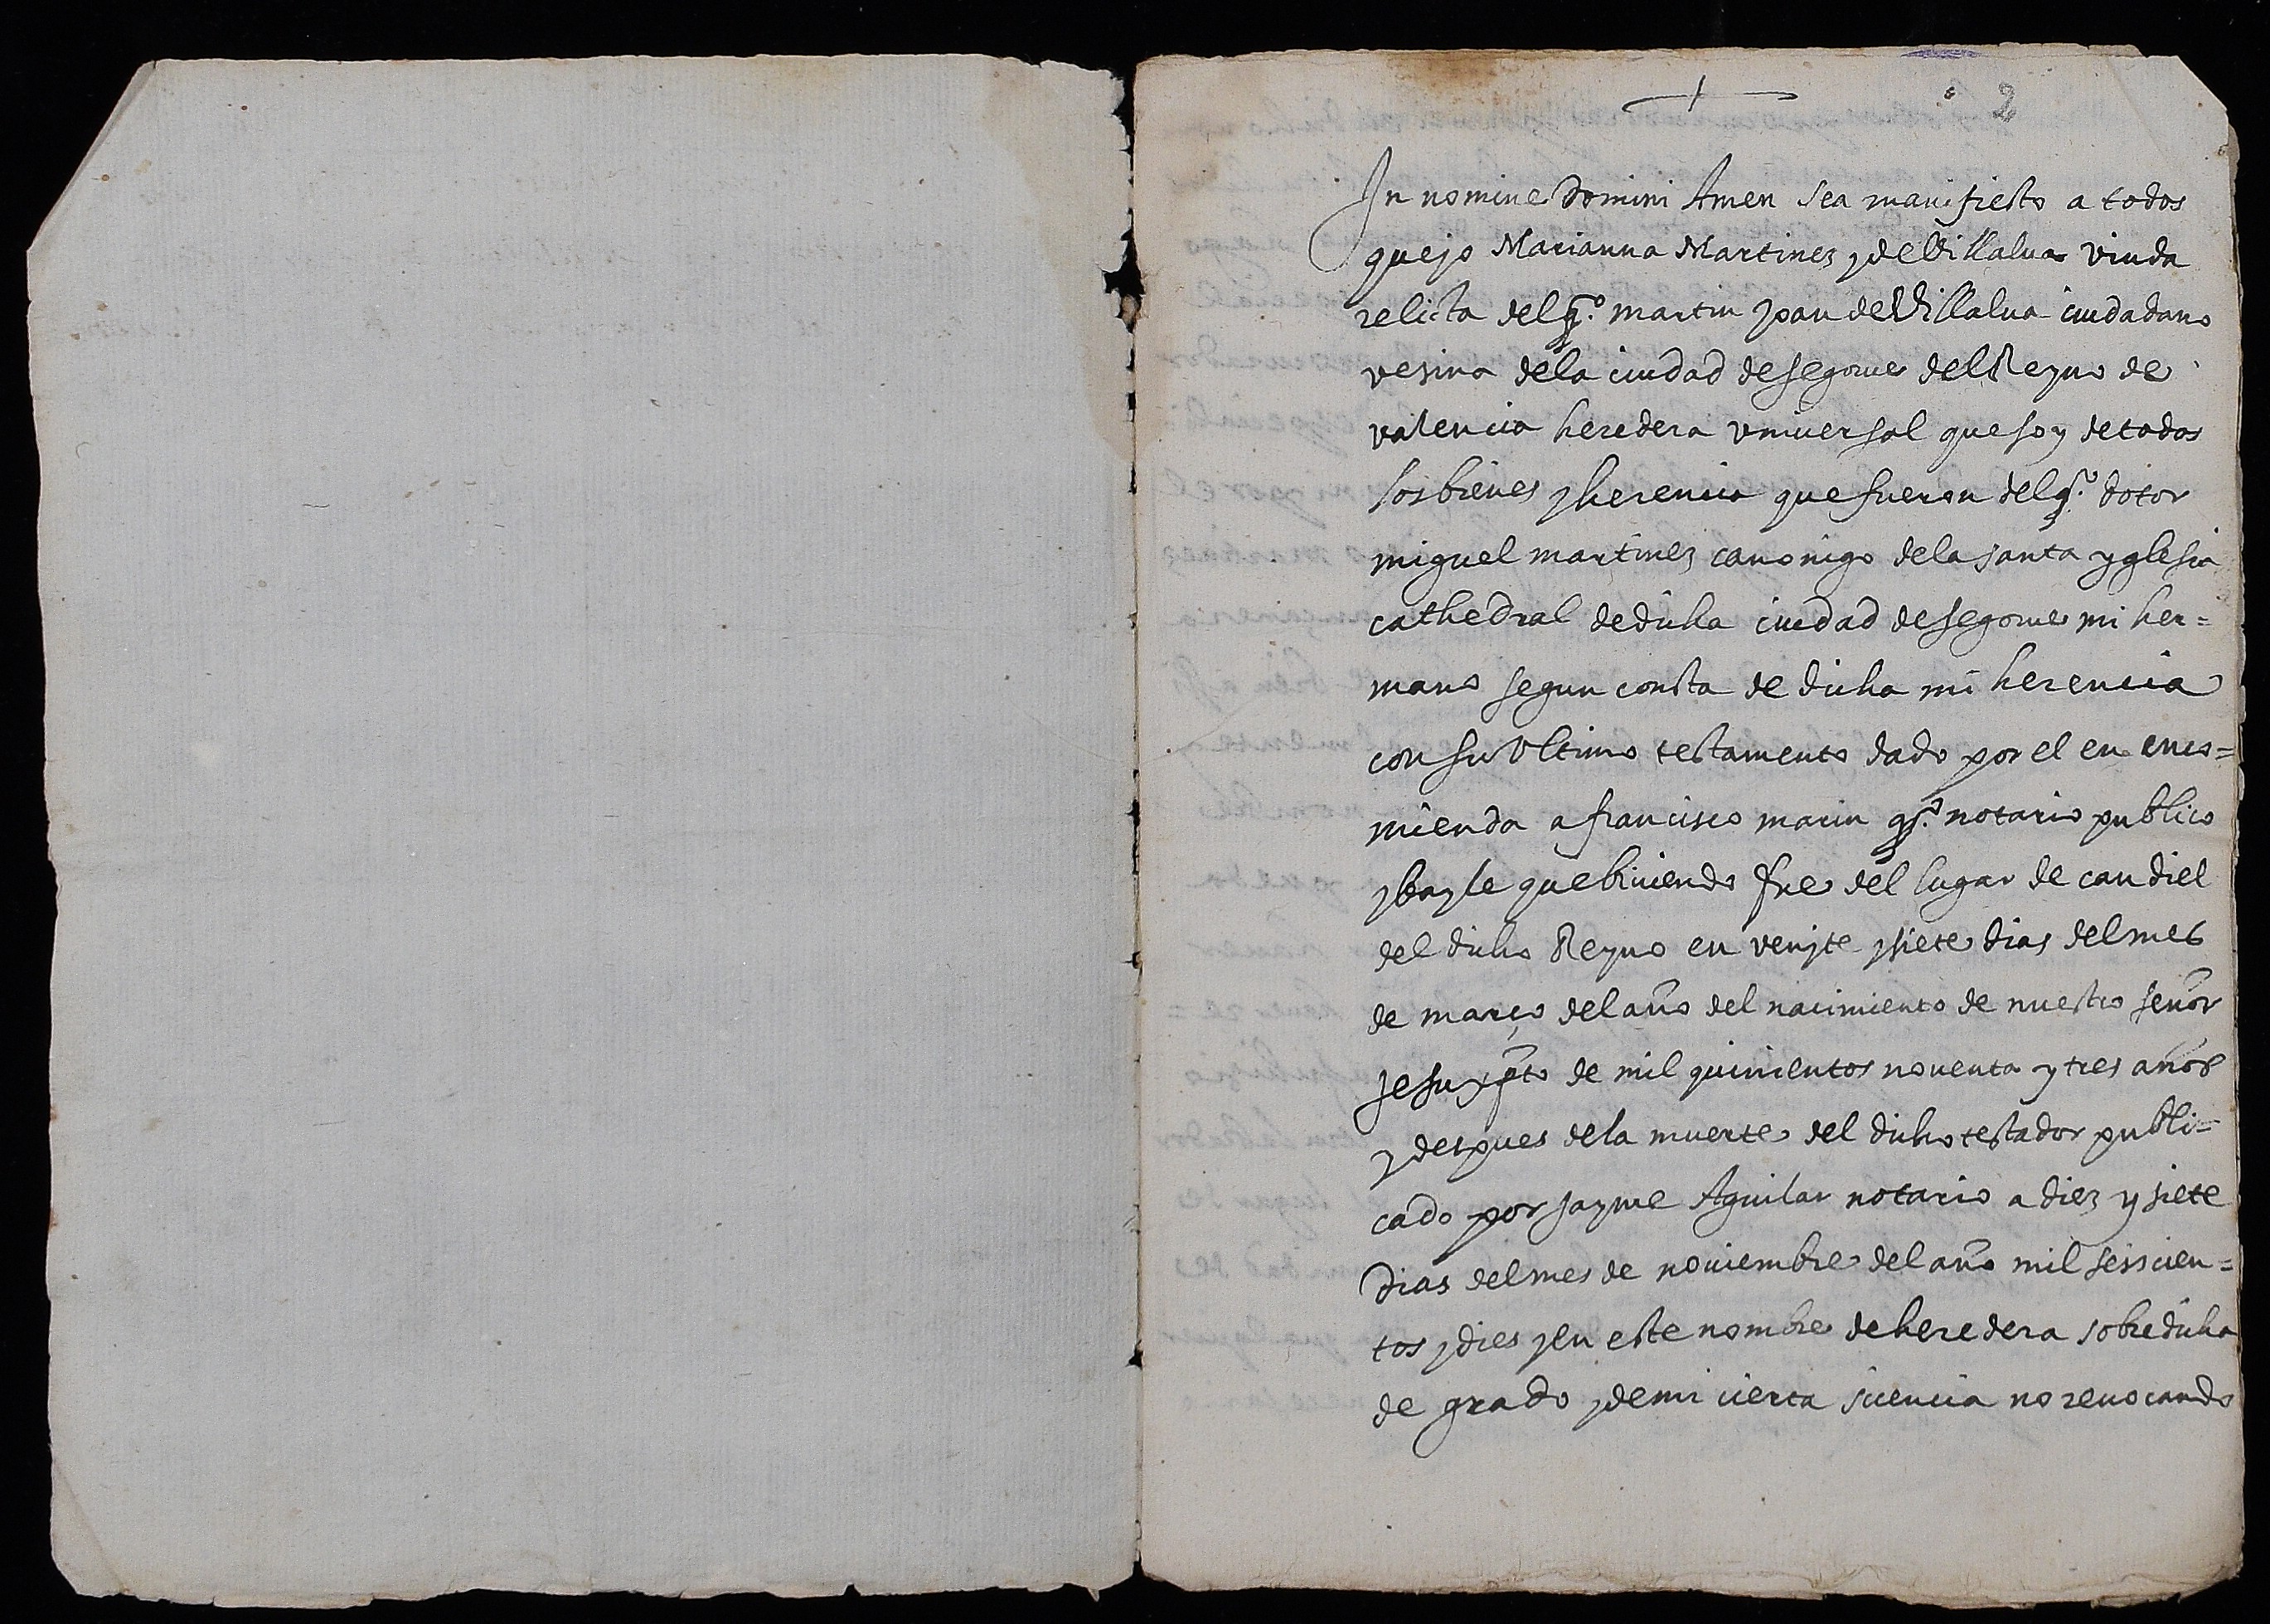 2
In nomine Domini Amen sea manifiesto a todos
que jo Marianna Martinez y de Villalua viuda
relicta del q.º martin joan de Villalua ciudadano
vesina de la ciudad de segorue del Reyno de
valencia heredera vniuersal que soy de todos
los bienes y herencia que fueron del q.º dotor
miguel martinez canonigo de la santa yglesia
cathedral de dicha ciudad de segorue mi her=
mano segun consta de dicha mi herencia
con su vltimo testamento dado por el en enco=
mienda a francisco marin q.º notario publico
y bayle que biuiendo fue del lugar de caudiel
del dicho Reyno en venjte y siete dias del mes
de março del año del nacimiento de nuestro señor
jesuxpto de mil quinientos nouenta y tres años
y despues de la muerte del dicho testador publi=
cado por jayme Aguilar notario a diez y siete
dias del mes de nouiembre del año mil seiscien=
tos y dies y en este nombre de heredera sobredicha
de grado y de mi cierta sciencia no reuocando